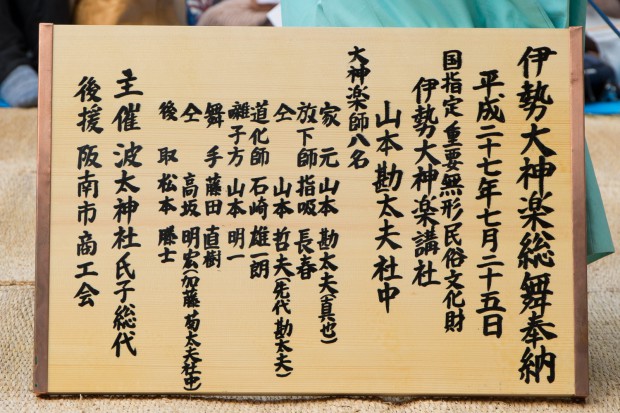 伊勢大神楽総舞奉納
平成二十七年七月二十五日
国指定重要無形民俗文化財
伊勢大神楽講社
山本勘太夫社中
大神楽師八名
家元 山本 勘太夫(真也)
放下師 指吸 長春
仝 山本 哲夫(先代 勘太夫)
道化師 石崎 雄一朗
囃子方 山本 明一
舞手 藤田 直樹
仝 高坂 明宏(加藤 菊太夫社中)
後取 松本 勝士
主催 波太神社氏子総代
後援 阪南市商工会